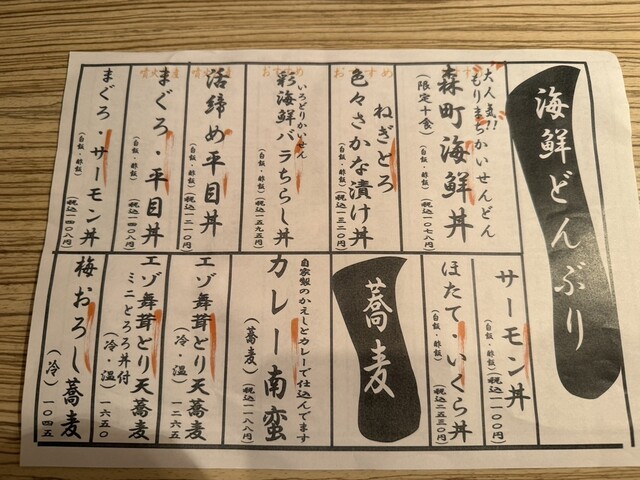 海鮮どんぶり
大人気!!
もりまちかいせんどん
森町海鮮丼
(限定十食)
(白飯・酢飯)
(税込一〇七八円)
おすすめ
ねぎとろ
色々さかな漬け丼
(白飯・酢飯)
(税込一三二〇円)
おすすめ
いろどりかいせん
彩海鮮バラちらし丼
(白飯・酢飯)
(税込一五九五円)
噴火湾産
活締め平目丼
(白飯・酢飯)
(税込一二一〇円)
噴火湾産
まぐろ・平目丼
(白飯・酢飯)
(税込一四〇八円)
まぐろ・サーモン丼
(白飯・酢飯)
(税込一四〇八円)
サーモン丼
(白飯・酢飯)
(税込一一〇〇円)
ほたて・いくら丼
(白飯・酢飯)
(税込二五三〇円)
蕎麦
自家製のかえしとカレーで仕込んでます
カレー南蛮
(蕎麦)
(税込一一八八円)
エゾ舞茸とり天蕎麦
(冷・温)
一二六五
エゾ舞茸とり天蕎麦
ミニとろろ丼付
(冷・温)
一六五〇
梅おろし蕎麦
(冷)
一〇四五